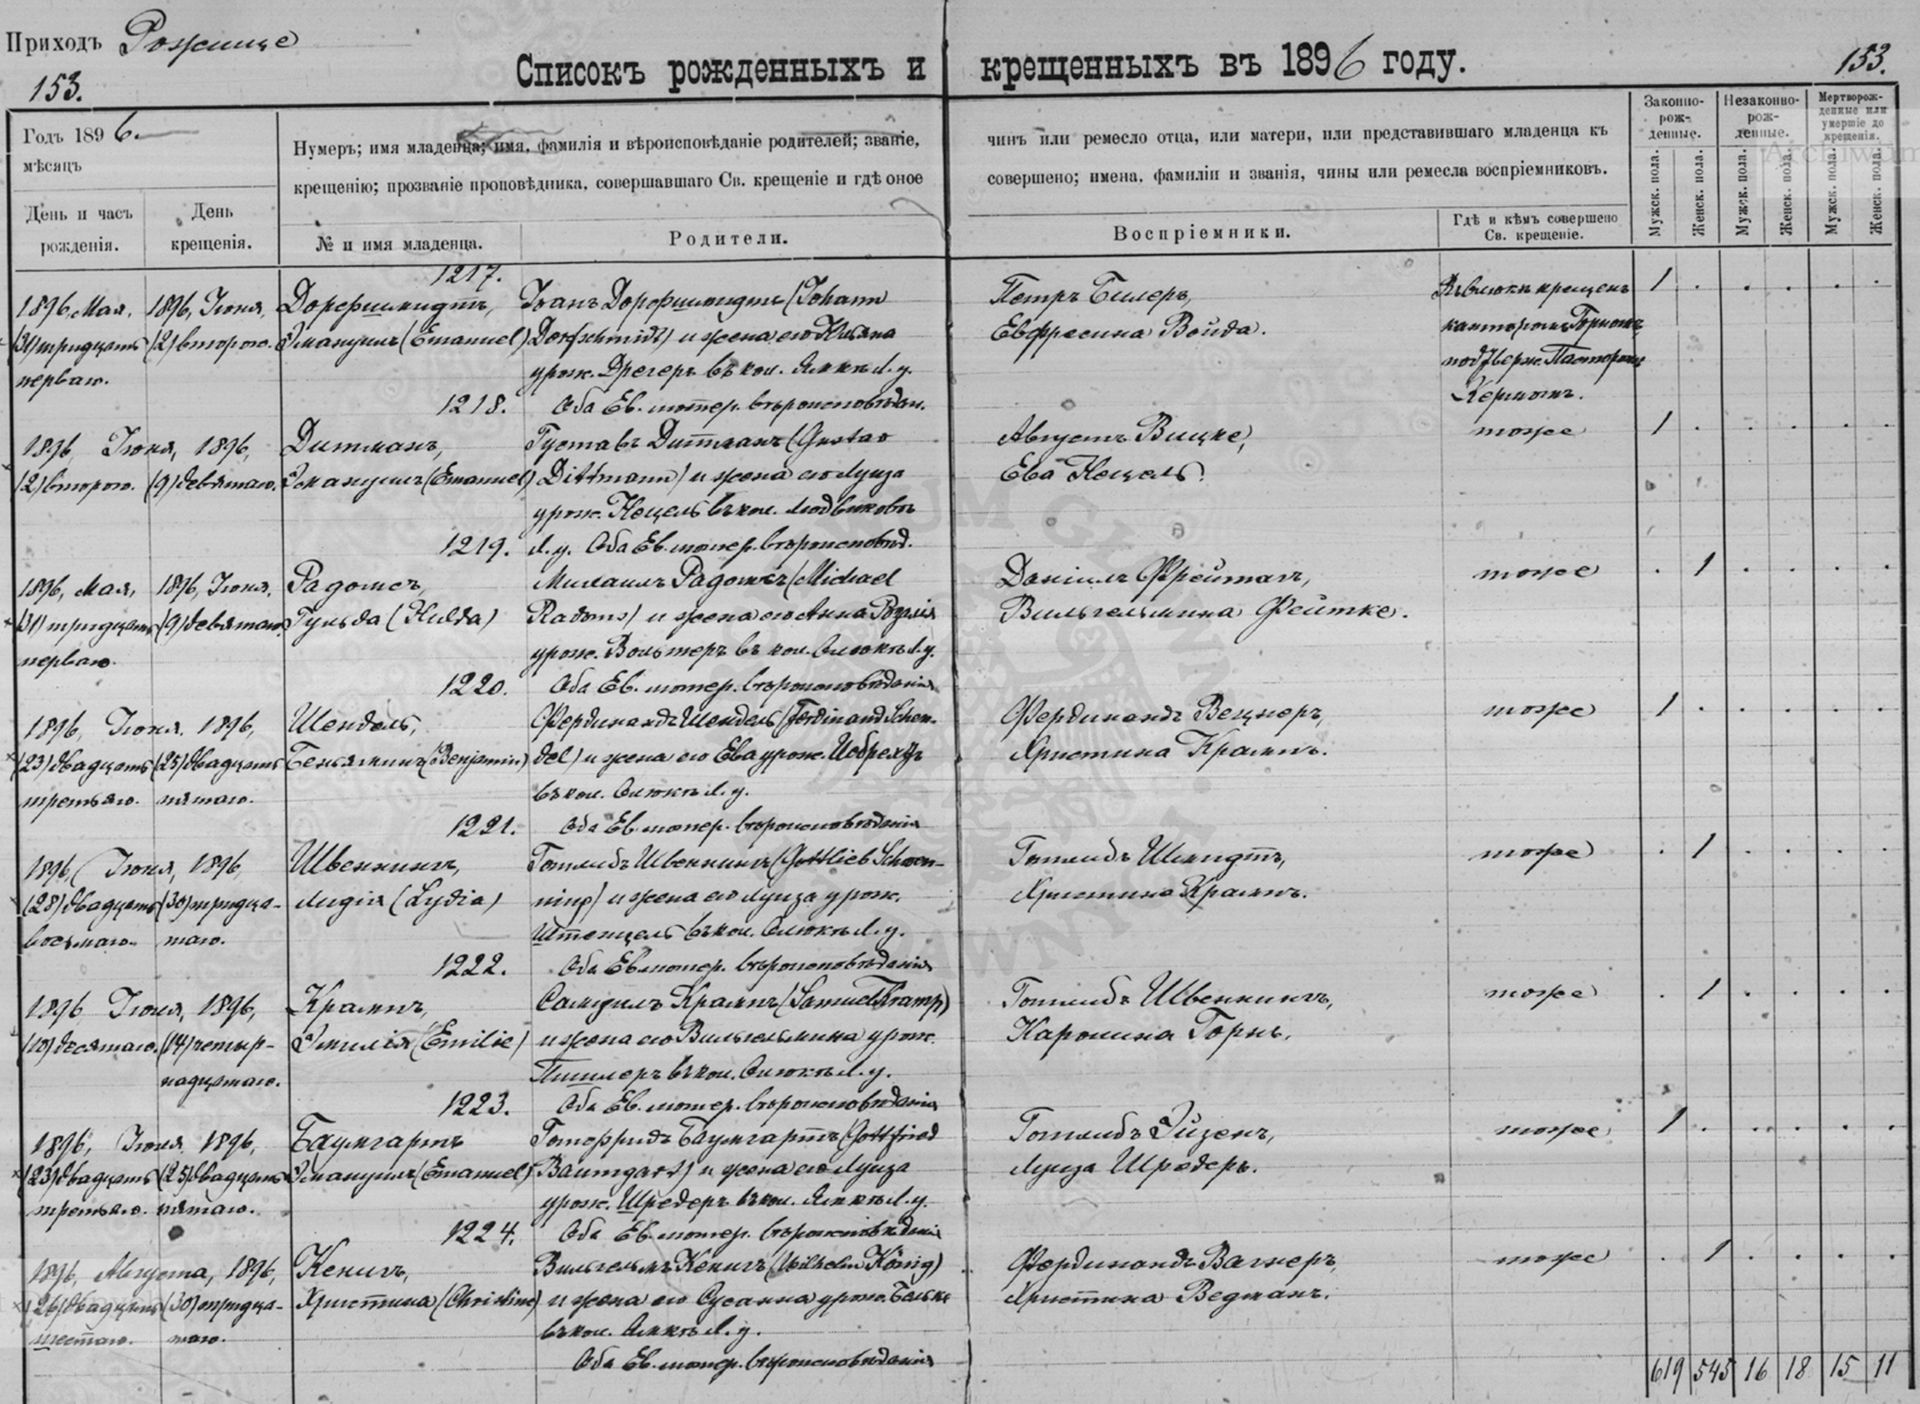 Приходъ Рожище
153.
Списокъ рожденныхъ и крещенныхъ въ 1896 году.
153.
Годъ 1896.
мѣсяцъ
День и часъ рожденія.
День крещенія.
Нумеръ; имя младенца; имя, фамилія и вѣроисповѣданіе родителей; званіе, чинъ или ремесло отца, или матери, или представившаго младенца къ
крещенію; прозваніе проповѣдника, совершавшаго Св. крещеніе и гдѣ оное совершено; имена, фамиліи и званія, чины или ремесла воспріемниковъ.
№ и имя младенца.
Родители.
Воспріемники.
Гдѣ и кѣмъ совершено Св. крещеніе.
Законно-рож-денные.
Незаконно-рож-денные.
Мертворож-денные или умершіе до крещенія.
Мужск. пола.
Женск. пола.
Мужск. пола.
Женск. пола.
Мужск. пола.
Женск. пола.
1217.
1896, Мая, 1896, Іюня, Дорфшмидтъ, Іоганъ Дорфшмидтъ (Johann Петръ Билеръ, крещенъ 1
(31) тридцать (2) второго. Эмануилъ (Emanuel) Dorfschmidt) и жена его Евфросина Война. канторомъ Горномъ
перваго. урож. Дрегеръ въ кол. Ямки Л. у. подтверж. Пасторомъ
1218. Оба Ев. лютер. вѣроисповѣдан. Керномъ.
1896, Іюня, 1896, Дитманъ, Густавъ Диттманъ (Gustav Августъ Вицке, тоже 1
(2) второго. (9) девятаго. Эмануилъ (Emanuel) Dittmann) и жена его Луиза Ева Нецель.
урож. Нецель въ кол. Людвиковъ
1219. Л. у. Оба Ев. лютер. вѣроисповѣд.
1896, Мая, 1896, Іюня, Радомсъ, Михаилъ Радомсъ (Michael Даніилъ Фрейтагъ, тоже 1
(31) тридцать (9) девятаго. Гульда (Hulda) Radoms) и жена его Анна Розалія Вильгельмина Фейтке.
перваго. урож. Вольтеръ въ кол. Олюкъ Л. у.
1220. Оба Ев. лютер. вѣроисповѣданія
1896, Іюня, 1896, Шендель, Фердинандъ Шендель (Ferdinand Schen- Фердинандъ Вецнеръ, тоже 1
(23) двадцать (25) двадцать Беньяминъ (Benjamin) del) и жена его Ева урож. Христина Крампъ.
третьяго. пятаго. въ кол. Олюкъ Л. у.
1221. Оба Ев. лютер. вѣроисповѣданія
1896, Іюня, 1896, Швеннингъ, Готлибъ Швеннингъ (Gottlieb Schwen- Готлибъ Шмидтъ, тоже 1
(28) двадцать (30) тридца- Лидія (Lydia) ning) и жена его Луиза урож. Христина Крампъ.
восьмаго. таго. Штенцель въ кол. Олюкъ Л. у.
1222. Оба Ев. лютер. вѣроисповѣданія
1896 Іюня, 1896, Крампъ, Самуилъ Крампъ (Samuel Kramp) Готлибъ Швеннингъ, тоже 1
(10) десятаго. (14) четыр- Эмилія (Emilie) и жена его Вильгельмина урож. Каролина Горнъ.
надцатаго. Пишлеръ въ кол. Олюкъ Л. у.
1223. Оба Ев. лютер. вѣроисповѣданія
1896, Іюня, 1896, Баумгартъ Готфридъ Баумгартъ (Gottfried Готлибъ Эйзенъ, тоже 1
(23) двадцать (25) двадцать Эмануилъ (Emanuel) Baumgart) и жена его Луиза Луиза Шредеръ.
третьяго. пятаго. урож. Шредеръ въ кол. Ямки Л. у.
1224. Оба Ев. лютер. вѣроисповѣданія
1896, Августа, 1896, Кенигъ, Вильгельмъ Кенигъ (Wilhelm König) Фердинандъ Вагнеръ, тоже 1
(26) двадцать (30) тридца- Христина (Christine) и жена его Сусанна урож. Христина Ведманъ.
шестаго. таго. въ кол. Ямки Л. у.
Оба Ев. лютер. вѣроисповѣданія
619 545 16 18 15 11